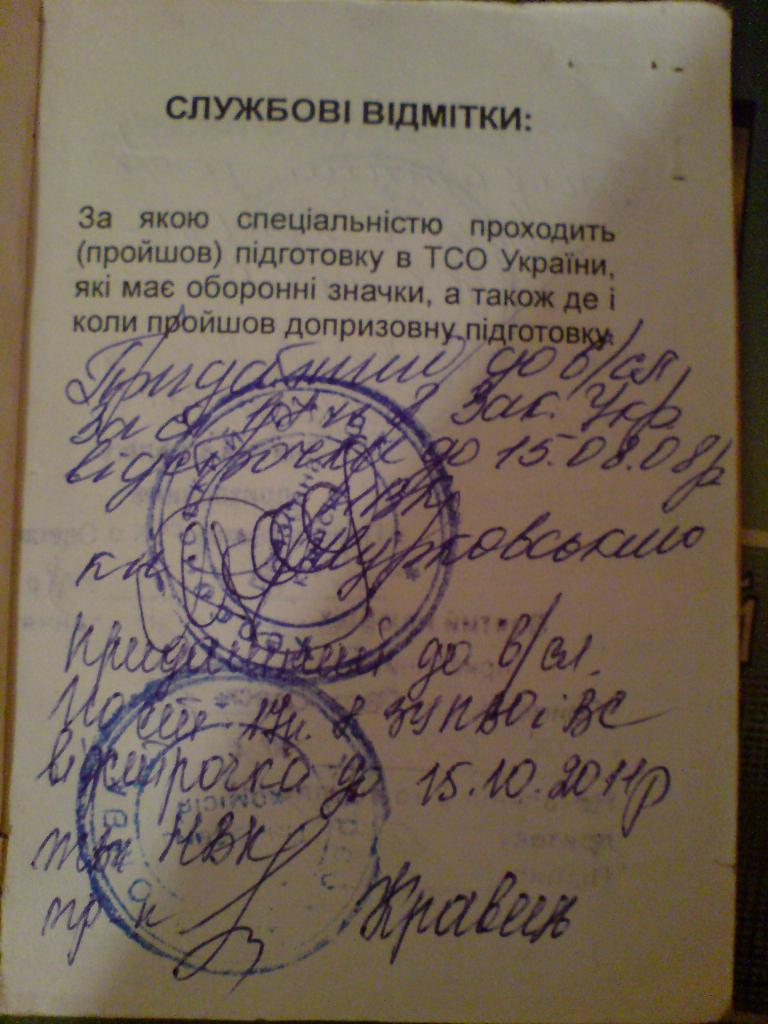 СЛУЖБОВІ ВІДМІТКИ:
За якою спеціальністю проходить
(пройшов) підготовку в ТСО України,
які має оборонні значки, а також де і
коли пройшов допризовну підготовку.
Придатний до в/сл
За ст. Зак. Укр
відстрочка до 15.08.08р
Журковський
придатний до в/сл.
17п. 8 ЗУ і ВС
відстрочка до 15.10.2011р
НВК
Кравець